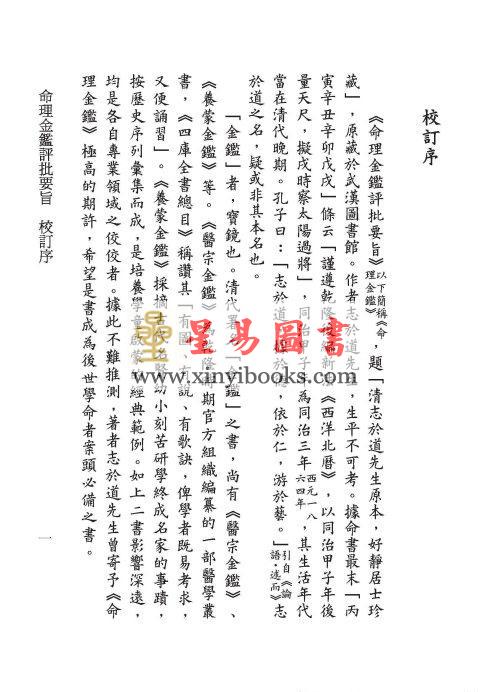 校訂序
《命理金鑑評批要旨》以下簡稱《命理金鑑》,題「清志於道先生原本,好靜居士珍
藏」,原藏於武漢圖書館。作者志於道先生,生平不可考。據命書最末「丙
寅辛丑辛卯戊戌」條云「謹遵乾隆新頒《西洋北曆》,以同治甲子年後
量天尺,擬戌時察太陽過將」,同治甲子年為同治三年西元一八六四年,其生活年代
當在清代晚期。孔子曰:「志於道,據於德,依於仁,游於藝。」引自《論語·述而》志
於道之名,疑或非其本名也。
「金鑑」者,寶鏡也。清代署名「金鑑」之書,尚有《醫宗金鑑》、
《養蒙金鑑》等。《醫宗金鑑》為乾隆時期官方組織編纂的一部醫學叢
書,《四庫全書總目》稱讚其「有圖、有說、有歌訣,俾學者既易考求,
又便誦習」。《養蒙金鑑》採摘古代名賢幼小刻苦研學終成名家的事蹟,
按歷史序列彙集而成,是培養學童啟蒙的經典範例。如上二書影響深遠,
均是各自專業領域之佼佼者。據此不難推測,著者志於道先生曾寄予《命
理金鑑》極高的期許,希望是書成為後世學命者案頭必備之書。
命理金鑑評批要旨 校訂序
一
星易圖書
www.xinyibooks.com